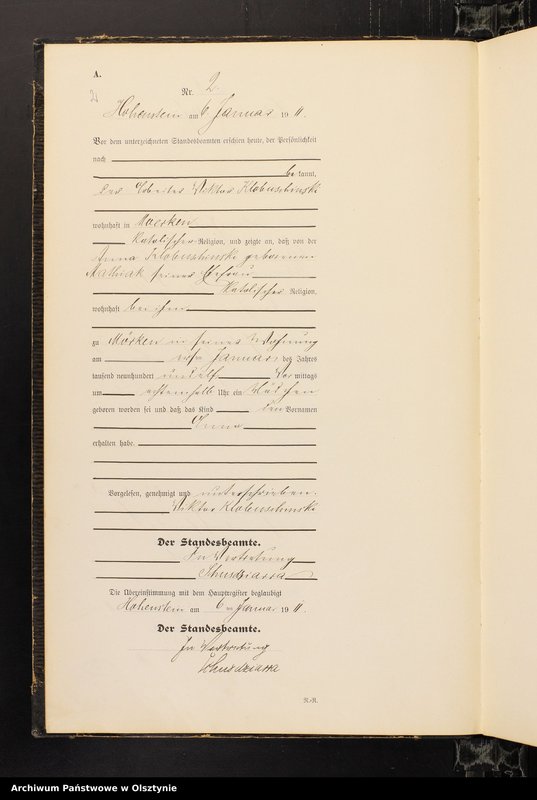 A.
Nr. 2.
Hohenstein am 6 Januar 1911.
Vor dem unterzeichneten Standesbeamten erschien heute, der Persönlichkeit
nach
be kannt,
der Arbeiter Viktor Klobuschinski
wohnhaft in Moerken
Katolischer Religion, und zeigte an, daß von der
Anna Klobuschinski geborenen
seiner Ehefrau
Katolischer Religion,
wohnhaft bei ihm
zu Mörken in seiner Wohnung
am Januar des Jahres
tausend neunhundert und elf Vor mittags
um achteinhalb Uhr ein Mädchen
geboren worden sei und daß das Kind den Vornamen
Anna
erhalten habe.
Vorgelesen, genehmigt und unterschrieben.
Viktor Klobuschinski
Der Standesbeamte.
In Vertretung
Die Übereinstimmung mit dem Hauptregister beglaubigt
Hohenstein am 6 ten Januar 1911.
Der Standesbeamte.
In Vertretung
Archiwum Państwowe w Olsztynie